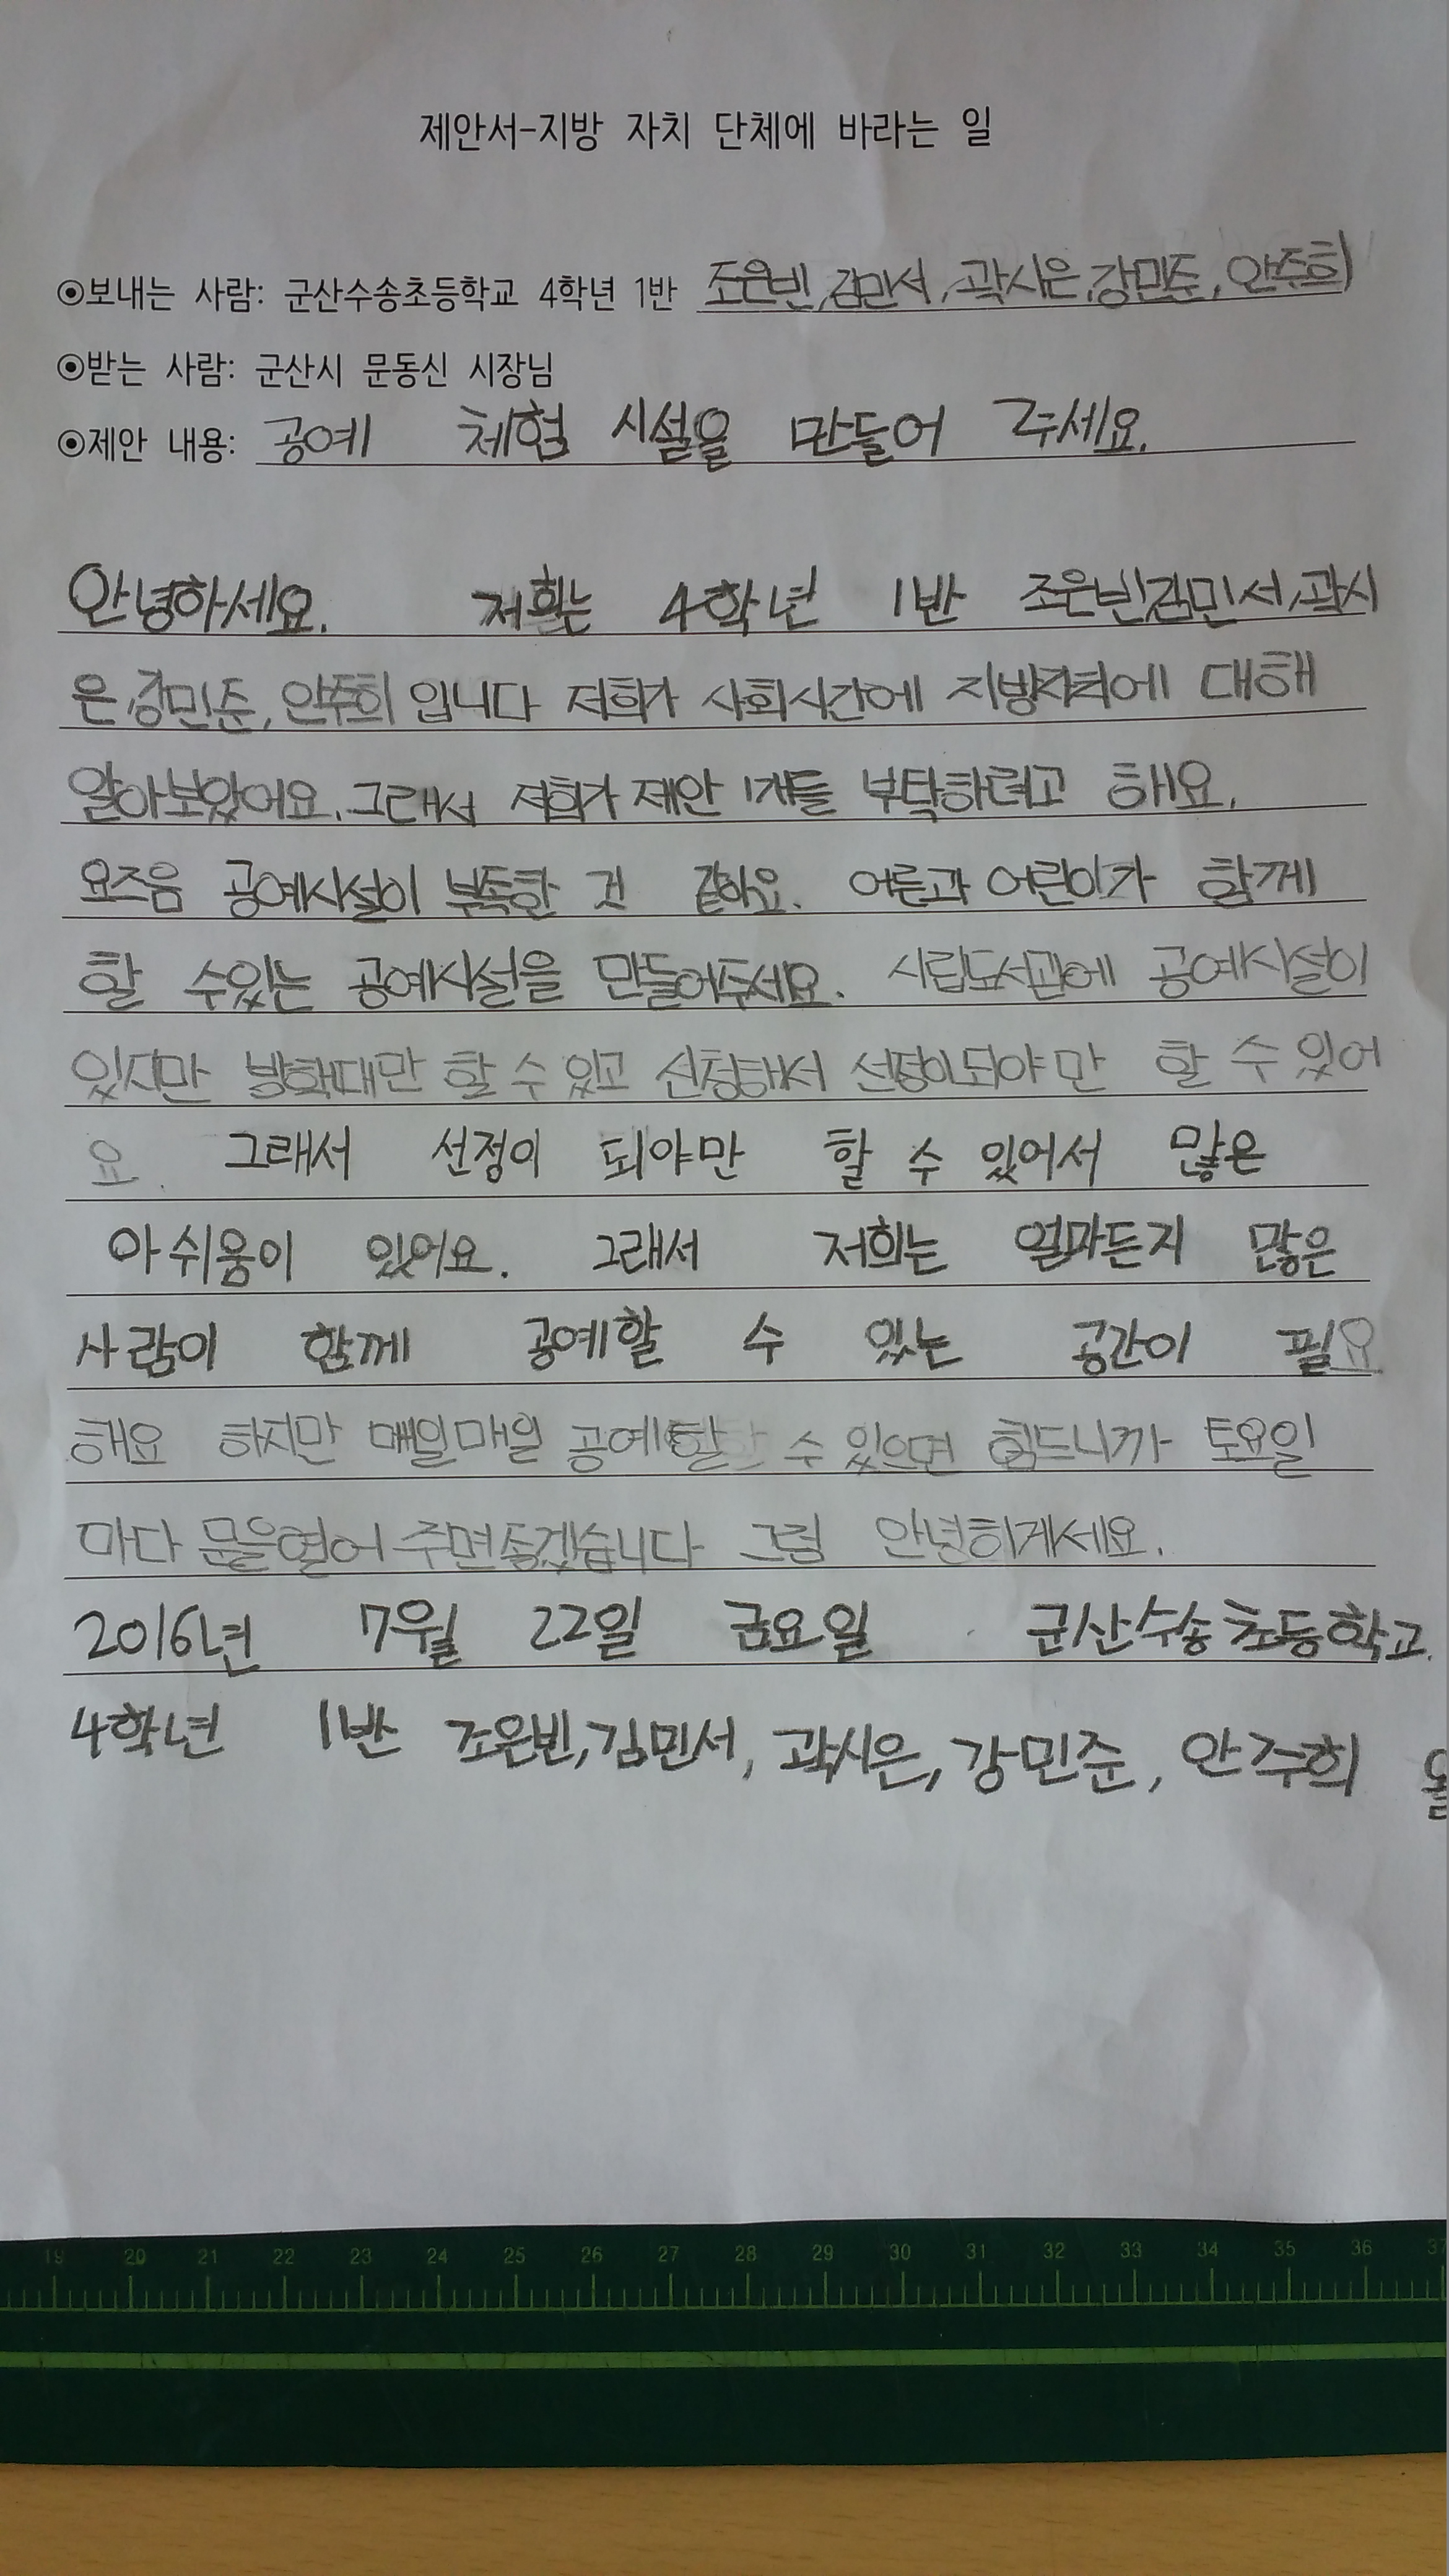 제안서-지방 자치 단체에 바라는 일
⊙보내는 사람: 군산수송초등학교 4학년 1반 조은빈, 김민서, 곽시은, 강민준, 안주희
⊙받는 사람: 군산시 문동신 시장님
⊙제안 내용: 공예 체험 시설을 만들어 주세요.
안녕하세요. 저희는 4학년 1반 조은빈, 김민서, 곽시
은, 강민준, 안주희 입니다 저희가 사회시간에 지방자치에 대해
알아보았어요. 그래서 저희가 제안 1개를 부탁하려고 해요.
요즈음 공예시설이 부족한 것 같아요. 어른과 어린이가 함께
할 수있는 공예시설을 만들어주세요. 시립도서관에 공예시설이
있지만 방학때만 할 수 있고 신청해서 선정이되야만 할 수 있어
요. 그래서 선정이 되야만 할 수 있어서 많은
아쉬움이 있어요. 그래서 저희는 얼마든지 많은
사람이 함께 공예할 수 있는 공간이 필요
해요 하지만 매일매일 공예할 수 있으면 힘드니까 토요일
마다 문을열어 주면좋겠습니다 그럼 안녕히계세요.
2016년 7월 22일 금요일 군산수송초등학교.
4학년 1반 조은빈, 김민서, 곽시은, 강민준, 안주희 올
19 20 21 22 23 24 25 26 27 28 29 30 31 32 33 34 35 36